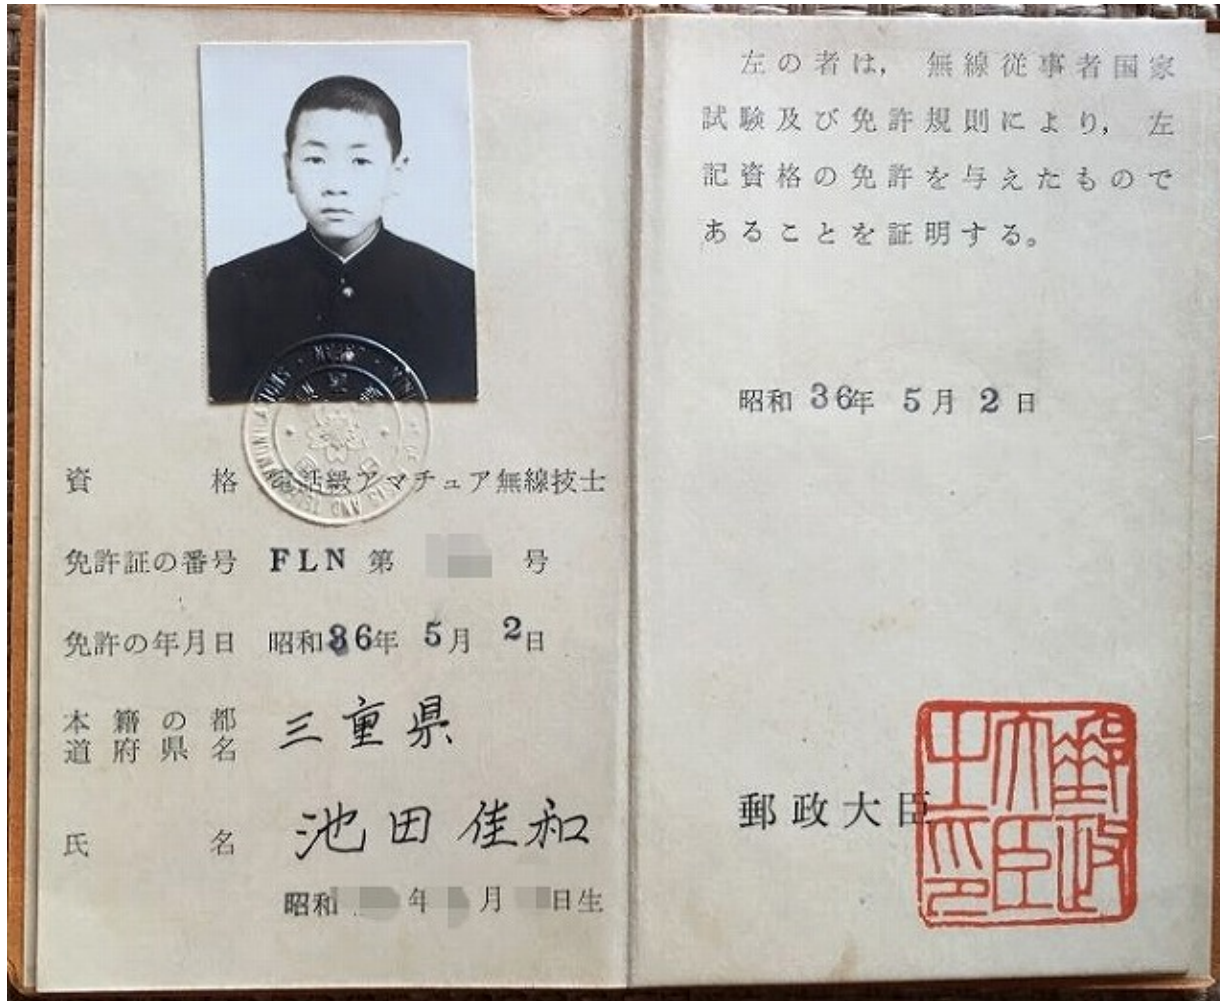 資格 電話級アマチュア無線技士
免許証の番号 FLN 第 号
免許の年月日 昭和36年 5月 2日
本籍の都
道府県名 三重県
氏名 池田佳和
昭和 年 月 日生
左の者は,無線従事者国家
試験及び免許規則により,左
記資格の免許を与えたもので
あることを証明する。
昭和 36年 5月 2日
郵政大臣
郵政
大臣
之印